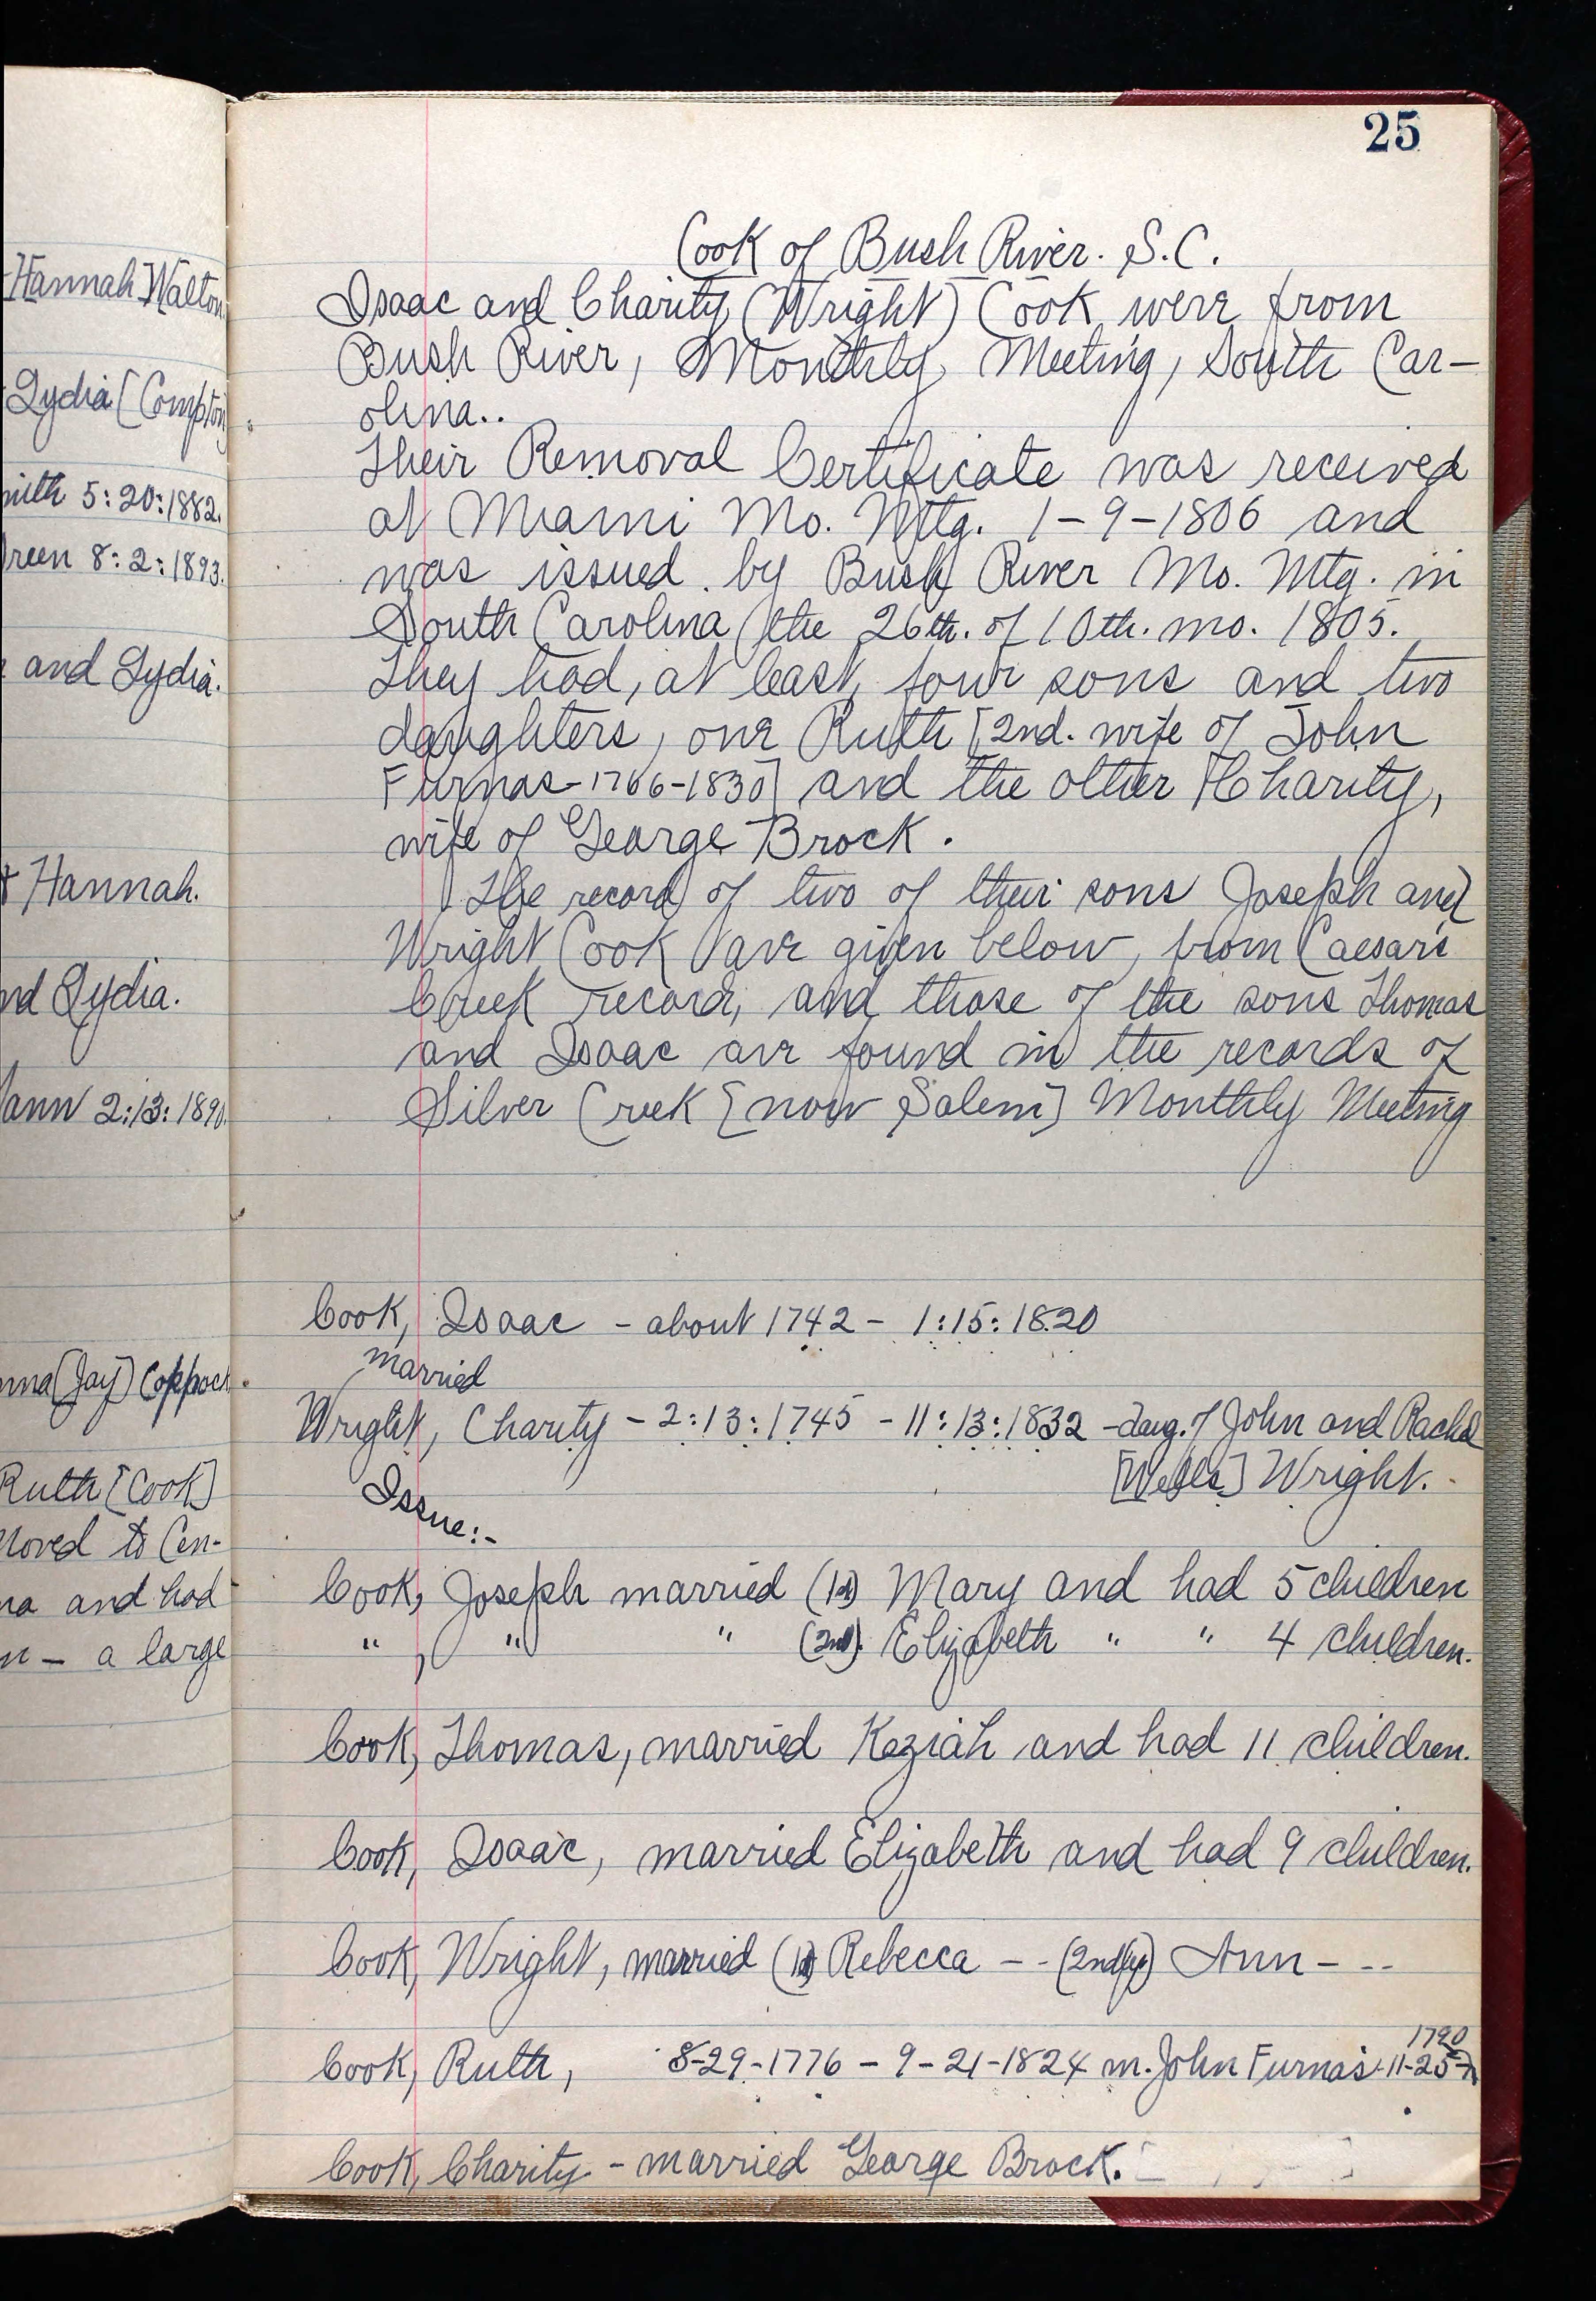 Hannah Walton
Lydia [Compton
mith 5:20:1882.
reen 8:2:1893.
and Lydia.
Hannah.
nd Lydia.
ann 2:13:1890.
nna (Jay) Coppock
Ruth [Cook]
Moved to Cen-
na and had
n - a large
25
Cook of Bush River. S.C.
Isaac and Charity (Wright) Cook were from
Bush River, Monthly Meeting, South Car-
olina..
Their Removal Certificate was received
at Miami Mo. Mtg. 1-9-1806 and
was issued by Bush River Mo. Mtg. in
South Carolina the 26th. of 10th. mo. 1805.
They had, at least, four sons and two
daughters, one Ruth [2nd. wife of John
Furnas-1766-1830] and the other Charity,
wife of George Brock.
The record of two of their sons Joseph and
Wright Cook are given below, from Caesar's
Creek record, and those of the sons Thomas
and Isaac are found in the records of
Silver Creek [now Salem] Monthly Meeting
Cook, Isaac - about 1742 - 1:15:1820
married
Wright, Charity - 2:13:1745 - 11:13:1832 - daug. of John and Rachel
[Wells] Wright.
Issue:-
Cook, Joseph married (1st) Mary and had 5 children
" , " " (2nd). Elizabeth " " 4 children.
Cook, Thomas, married Keziah and had 11 children.
Cook, Isaac, married Elizabeth and had 9 children.
Cook, Wright, married (1st) Rebecca - - (2ndly) Ann - --
1790
Cook, Ruth, 8-29-1776 - 9-21-1824 m. John Furnas-11-25-
Cook, Charity - married George Brock.